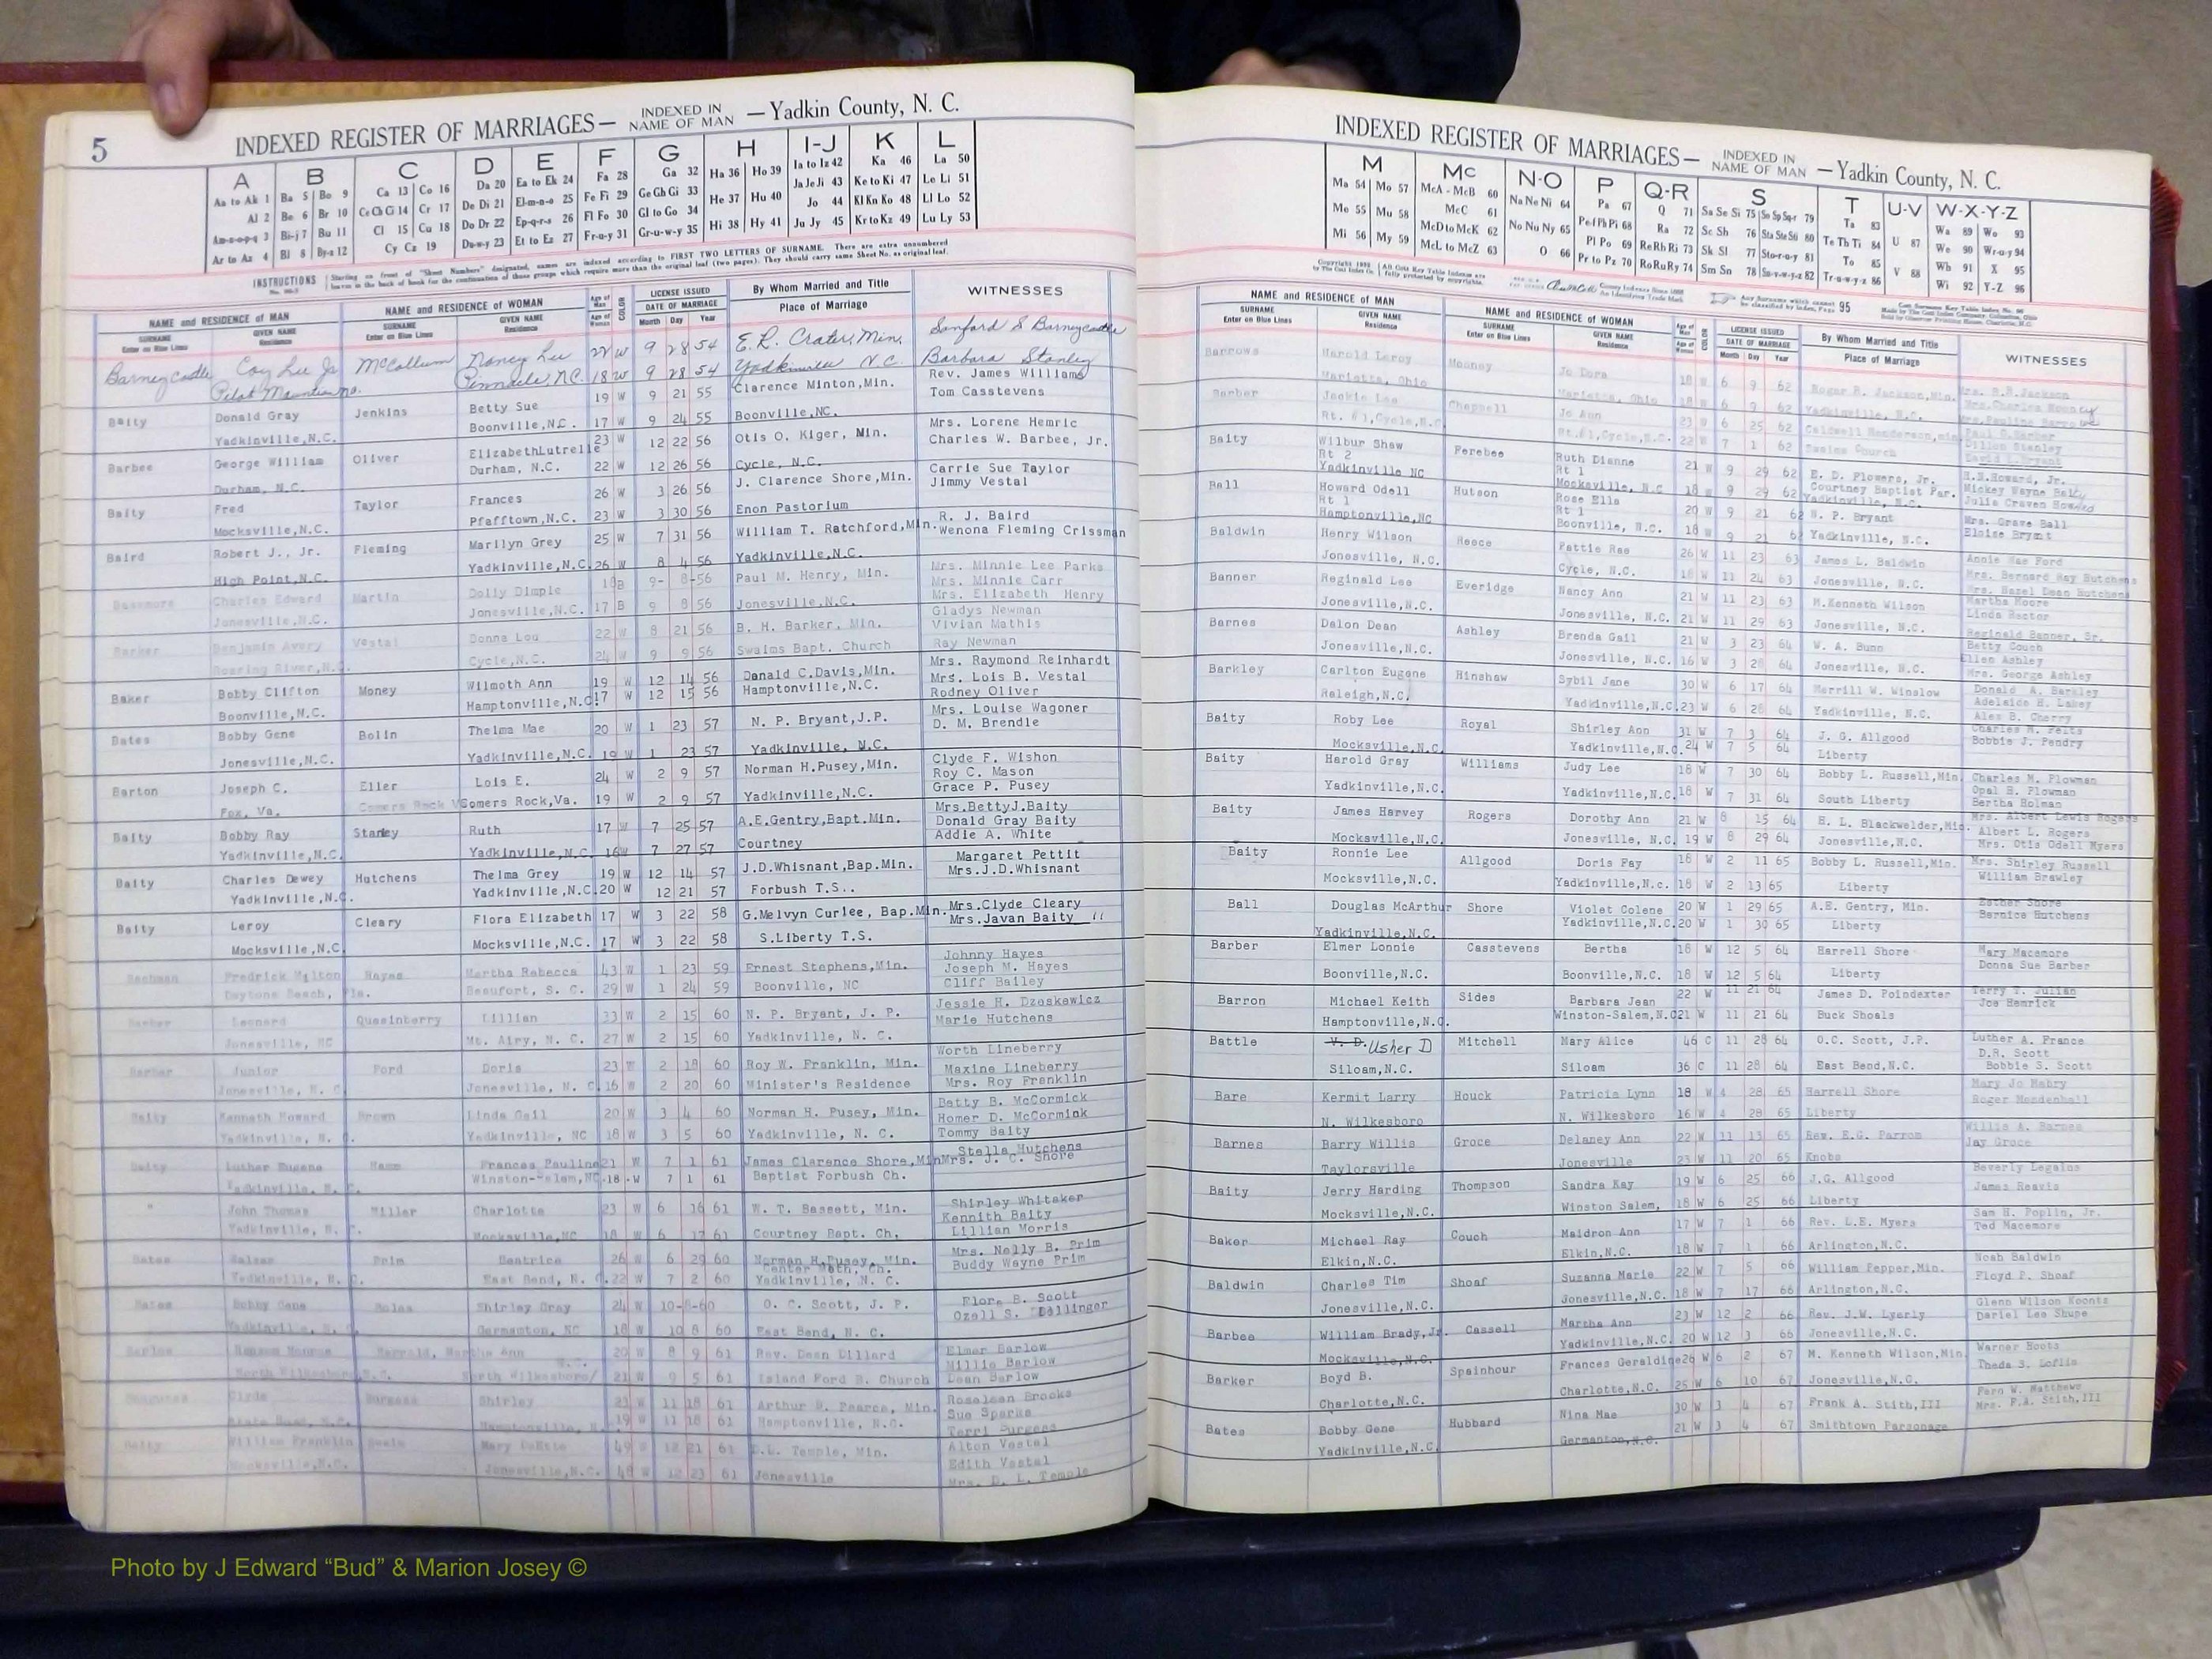 5
INDEXED REGISTER OF MARRIAGES— INDEXED IN NAME OF MAN —Yadkin County, N. C.
A B C D E F G H I-J K L
Aa to Ak 1 Ba 5 Bo 9 Ca 13 Co 16 Da 20 Ea to Ek 24 Fa 28 Ga 32 Ha 36 Ho 39 Ia to Iz 42 Ka 46 La 50
Al 2 Be 6 Br 10 Ce Ch Ci 14 Cr 17 De Di 21 El-m-n-o 25 Fe Fi 29 Ge Gh Gi 33 He 37 Hu 40 Ja Je Ji 43 Ke to Ki 47 Le Li 51
Am-n-o-p-q 3 Bi-j 7 Bu 11 Cl 15 Cu 18 Do Dr 22 Ep-q-r-s 26 Fl Fo 30 Gl to Go 34 Hi 38 Hy 41 Jo 44 Kl Kn Ko 48 Ll Lo 52
Ar to Az 4 Bl 8 By-z 12 Cy Cz 19 Du-w-y 23 Et to Ez 27 Fr-u-y 31 Gr-u-w-y 35 Ju Jy 45 Kr to Kz 49 Lu Ly 53
INSTRUCTIONS
NAME and RESIDENCE of MAN NAME and RESIDENCE of WOMAN LICENSE ISSUED By Whom Married and Title WITNESSES
SURNAME Enter on Blue Lines GIVEN NAME Residence SURNAME Enter on Blue Lines GIVEN NAME Residence Age of Man Age of Woman COLOR DATE OF MARRIAGE Month Day Year Place of Marriage
Barneycastle Coy Lee Jr McCollum Nancy Lee 22 W 9 28 54 E. R. Crater, Min. Sanford S Barneycastle
Pilot Mountain Pinnacle N.C. 18 W 9 28 54 Yadkinville N.C. Barbara Stanley
Rev. James Williams
Baity Donald Gray Jenkins Betty Sue 19 W 9 21 55 Clarence Minton,Min. Tom Casstevens
Yadkinville,N.C. Boonville,N.C. 17 W 9 24 55 Boonville,NC. Mrs. Lorene Hemric
Barbee George William Oliver ElizabethLutrelle 23 W 12 22 56 Otis O. Kiger, Min. Charles W. Barbee, Jr.
Durham, N.C. Durham, N.C. 22 W 12 26 56 Cycle, N.C. Carrie Sue Taylor
Baity Fred Taylor Frances 26 W 3 26 56 J. Clarence Shore,Min. Jimmy Vestal
Mocksville,N.C. Pfafftown,N.C. 23 W 3 30 56 Enon Pastorium
Baird Robert J., Jr. Fleming Marilyn Grey 25 W 7 31 56 William T. Ratchford,Min. R. J. Baird
High Point,N.C. Yadkinville,N.C. 26 W 8 4 56 Yadkinville,N.C. Wenona Fleming Crissman
Charles Edward Martin Dolly Dimple 18 B 9- 8-56 Paul M. Henry, Min. Mrs. Minnie Lee Parks
Jonesville,N.C. Jonesville,N.C. 17 B 9 8 56 Jonesville,N.C. Mrs. Minnie Carr
Mrs. Elizabeth Henry
Barker Benjamin Avery Vestal Donna Lou 22 W 8 21 56 B. H. Barker, Min. Gladys Newman
Roaring River,N.C. Cycle,N.C. 24 W 9 9 56 Swaims Bapt. Church Vivian Mathis
Ray Newman
Baker Bobby Clifton Money Wilmoth Ann 19 W 12 14 56 Donald C.Davis,Min. Mrs. Raymond Reinhardt
Boonville,N.C. Hamptonville,N.C. 17 W 12 15 56 Hamptonville,N.C. Mrs. Lois B. Vestal
Rodney Oliver
Bates Bobby Gene Bolin Thelma Mae 20 W 1 23 57 N. P. Bryant,J.P. Mrs. Louise Wagoner
Jonesville,N.C. Yadkinville,N.C. 19 W 1 23 57 Yadkinville, N.C. D. M. Brendle
Barton Joseph C. Eller Lois E. 24 W 2 9 57 Norman H.Pusey,Min. Clyde F. Wishon
Fox, Va. Comers Rock Comers Rock,Va. 19 W 2 9 57 Yadkinville,N.C. Roy C. Mason
Grace P. Pusey
Baity Bobby Ray Stanley Ruth 17 W 7 25 57 A.E.Gentry,Bapt.Min. Mrs.BettyJ.Baity
Yadkinville,N.C. Yadkinville,N.C. 16 W 7 27 57 Courtney Donald Gray Baity
Addie A. White
Baity Charles Dewey Hutchens Thelma Grey 19 W 12 14 57 J.D.Whisnant,Bap.Min. Margaret Pettit
Yadkinville,N.C. Yadkinville,N.C. 20 W 12 21 57 Forbush T.S.. Mrs.J.D.Whisnant
Baity Leroy Cleary Flora Elizabeth 17 W 3 22 58 G.Melvyn Curlee, Bap.Min. Mrs.Clyde Cleary
Mocksville,N.C. Mocksville,N.C. 17 W 3 22 58 S.Liberty T.S. Mrs.Javan Baity "
Bachman Fredrick Milton Hayes Martha Rebecca 43 W 1 23 59 Ernest Stephens,Min. Johnny Hayes
Daytona Beach, Fla. Beaufort, S. C. 29 W 1 24 59 Boonville, NC Joseph M. Hayes
Cliff Bailey
Barber Leonard Quesinberry Lillian 33 W 2 15 60 N. P. Bryant, J. P. Jessie H. Dzeskewicz
Jonesville, NC Mt. Airy, N. C. 27 W 2 15 60 Yadkinville, N. C. Marie Hutchens
Barber Junior Ford Doris 23 W 2 18 60 Roy W. Franklin, Min. Worth Lineberry
Jonesville, N. C. Jonesville, N. C. 16 W 2 20 60 Minister's Residence Maxine Lineberry
Mrs. Roy Franklin
Baity Kenneth Howard Brown Linda Gail 20 W 3 4 60 Norman H. Pusey, Min. Betty B. McCormick
Yadkinville, N. C. Yadkinville, NC 18 W 3 5 60 Yadkinville, N. C. Homer D. McCormick
Tommy Baity
Baity Luther Eugene Hamm Frances Pauline 21 W 7 1 61 James Clarence Shore,Min Stella Hutchens
Yadkinville, N. C. Winston-Salem,NC. 18 W 7 1 61 Baptist Forbush Ch. Mrs. J. C. Shore
" John Thomas Miller Charlotte 23 W 6 16 61 W. T. Bassett, Min. Shirley Whitaker
Yadkinville, N. C. Mocksville,NC 18 W 6 17 61 Courtney Bapt. Ch. Kennith Baity
Lillian Morris
Bates Prim Beatrice 26 W 6 29 60 Norman H.Pusey, Min. Mrs. Nelly B. Prim
Center Meth. Ch.
Yadkinville, N. C. East Bend, N. C. 22 W 7 2 60 Yadkinville, N. C. Buddy Wayne Prim
Bates Bobby Gene Boles Shirley Gray 24 W 10-8-60 O. C. Scott, J. P. Flora B. Scott
Yadkinville, N. C. Germanton, NC 18 W 10 8 60 East Bend, N. C. Ozell S. Dollinger
Barlow Monroe Martha Ann 20 W 8 9 61 Rev. Dean Dillard Elmer Barlow
North Wilkesboro N.C. North Wilkesboro/ N.C. 21 W 9 5 61 Island Ford B. Church Millie Barlow
Dean Barlow
Clyde Burgess Shirley 23 W 11 18 61 Arthur D. Pearce, Min. Roselean Brooks
Hamptonville, N. 19 W 11 18 61 Hamptonville, N.C. Sue Sparks
Terri Burgess
Baity William Franklin Mary 49 W 12 21 61 D.L. Temple, Min. Alton Vestal
Mocksville,N.C. Jonesville,N.C. 48 W 12 23 61 Jonesville Edith Vestal
Mrs. D. L. Temple
INDEXED REGISTER OF MARRIAGES— INDEXED IN NAME OF MAN —Yadkin County, N. C.
M Mc N-O P Q-R S T U-V W-X-Y-Z
Ma 54 Mo 57 McA - McB 60 Na Ne Ni 64 Pa 67 Q 71 Sa Se Si 75 So Sp Sq-r 79 Ta 83 U 87 Wa 89 Wo 93
Me 55 Mu 58 McC 61 No Nu Ny 65 Pe-f Ph Pi 68 Ra 72 Sc Sh 76 Sta Ste Sti 80 Te Th Ti 84 V 88 We 90 Wr-u-y 94
Mi 56 My 59 McD to McK 62 O 66 Pl Po 69 Re Rh Ri 73 Sk Sl 77 Sto-r-u-y 81 To 85 Wh 91 X 95
McL to McZ 63 Pr to Pz 70 Ro Ru Ry 74 Sm Sn 78 Su-v-w-y-z 82 Tr-u-w-y-z 86 Wi 92 Y-Z 96
NAME and RESIDENCE of MAN NAME and RESIDENCE of WOMAN LICENSE ISSUED By Whom Married and Title WITNESSES
SURNAME Enter on Blue Lines GIVEN NAME Residence SURNAME Enter on Blue Lines GIVEN NAME Residence Age of Man Age of Woman COLOR DATE OF MARRIAGE Month Day Year Place of Marriage
Barrows Harold Leroy Mooney Jo Dora 18 W 6 9 62 Roger B. Jackson,Min. Mrs. R.B.Jackson
Marietta, Ohio Marietta, Ohio 18 W 6 9 62 Yadkinville, N.C. Mrs.Charles Mooney
Mrs.Pauline Barrows
Barber Jackie Lee Chappell Jo Ann 23 W 6 25 62 Caldwell Henderson,min Paul G.Barber
Rt. #1,Cycle,N.C. Rt.#1,Cycle,N.C. 22 W 7 1 62 Swaims Church Dilmus Stanley
David L.Bryant
Baity Wilbur Shaw Ferebee Ruth Dianne 21 W 9 29 62 E. D. Flowers, Jr. H.N.Howard, Jr.
Rt 2 Rt 1 Courtney Baptist Par. Mickey Wayne Baity
Yadkinville NC Mocksville, N.C 18 W 9 29 62 Yadkinville, N.C. Julia Craven Howard
Ball Howard Odell Hutson Rose Ella 20 W 9 21 62 N. P. Bryant Mrs. Grave Ball
Rt 1 Rt 1
Hamptonville,NC Boonville, N.C. 18 W 9 21 62 Yadkinville, N.C. Eloise Bryant
Baldwin Henry Wilson Reece Pattie Rae 26 W 11 23 63 James L. Baldwin Annie Mae Ford
Jonesville, N.C. Cycle, N.C. 18 W 11 24 63 Jonesville, N.C. Mrs. Bernard Ray Hutchens
Mrs. Hazel Dean Hutchens
Banner Reginald Lee Everidge Nancy Ann 21 W 11 23 63 M.Kenneth Wilson Martha Moore
Jonesville,N.C. Jonesville, N.C. 21 W 11 29 63 Jonesville, N.C. Linda Rector
Reginald Banner, Sr.
Barnes Dalon Dean Ashley Brenda Gail 21 W 3 23 64 W. A. Bunn Betty Couch
Jonesville,N.C. Jonesville, N.C. 16 W 3 28 64 Jonesville, N.C. Ellen Ashley
Mrs. George Ashley
Barkley Carlton Eugene Hinshaw Sybil Jane 30 W 6 17 64 Merrill W. Winslow Donald A. Barkley
Raleigh,N.C. Yadkinville,N.C. 23 W 6 28 64 Yadkinville, N.C. Adelaide H. Lakey
Alex B. Cherry
Baity Roby Lee Royal Shirley Ann 31 W 7 3 64 J. G. Allgood Charles M. Felts
Mocksville,N.C. Yadkinville,N.C. 24 W 7 5 64 Liberty Bobbie J. Pendry
Baity Harold Gray Williams Judy Lee 18 W 7 30 64 Bobby L. Russell,Min. Charles M. Plowman
Yadkinville,N.C. Yadkinville,N.C. 18 W 7 31 64 South Liberty Opal B. Plowman
Bertha Holman
Baity James Harvey Rogers Dorothy Ann 21 W 8 15 64 H. L. Blackwelder,Min. Mrs. Albert Lewis Rogers
Mocksville,N.C. Jonesville, N.C. 19 W 8 29 64 Jonesville,N.C. Albert L. Rogers
Mrs. Otis Odell Myers
Baity Ronnie Lee Allgood Doris Fay 18 W 2 11 65 Bobby L. Russell,Min. Mrs. Shirley Russell
Mocksville,N.C. Yadkinville,N.c. 18 W 2 13 65 Liberty William Brawley
Ball Douglas McArthur Shore Violet Colene 20 W 1 29 65 A.E. Gentry, Min. Esther Shore
Yadkinville,N.C. Yadkinville,N.C. 20 W 1 30 65 Liberty Bernice Hutchens
Barber Elmer Lonnie Casstevens Bertha 18 W 12 5 64 Harrell Shore Mary Macemore
Boonville,N.C. Boonville,N.C. 18 W 12 5 64 Liberty Donna Sue Barber
Barron Michael Keith Sides Barbara Jean 22 W 11 21 64 James D. Poindexter Terry T. Julian
Hamptonville,N.C. Winston-Salem,N.C 21 W 11 21 64 Buck Shoals Joe Hemrick
Battle V. D. Usher D Mitchell Mary Alice 46 C 11 28 64 O.C. Scott, J.P. Luther A. France
Siloam,N.C. Siloam 36 C 11 28 64 East Bend,N.C. D.R. Scott
Bobbie S. Scott
Bare Kermit Larry Houck Patricia Lynn 18 W 4 28 65 Harrell Shore Mary Jo Mabry
N. Wilkesboro N. Wilkesboro 16 W 4 28 65 Liberty Roger Mendenhall
Barnes Barry Willis Groce Delaney Ann 22 W 11 13 65 Rev. E.G. Parrom Willis A. Barnes
Taylorsville Jonesville 23 W 11 20 65 Knobs Jay Groce
Baity Jerry Harding Thompson Sandra Kay 19 W 6 25 66 J.G. Allgood Beverly Legains
Mocksville,N.C. Winston Salem, 18 W 6 25 66 Liberty James Reavis
Baker Michael Ray Couch Maidron Ann 17 W 7 1 66 Rev. L.E. Myers Sam H. Poplin, Jr.
Elkin,N.C. Elkin,N.C. 18 W 7 1 66 Arlington,N.C. Ted Macemore
Baldwin Charles Tim Shoaf Suzanna Marie 22 W 7 5 66 William Pepper,Min. Noah Baldwin
Jonesville,N.C. Jonesville,N.C. 18 W 7 17 66 Arlington,N.C. Floyd P. Shoaf
Barbee William Brady,Jr. Cassell Martha Ann 23 W 12 2 66 Rev. J.W. Lyerly Glenn Wilson Koontz
Mocksville,N.C. Yadkinville,N.C. 20 W 12 3 66 Jonesville,N.C. Dariel Lee Shupe
Barker Boyd B. Spainhour Frances Geraldine 26 W 6 2 67 M. Kenneth Wilson,Min. Warner Hoots
Charlotte,N.C. Charlotte,N.C. 25 W 6 10 67 Jonesville,N.C. Theda S. Loflis
Bates Bobby Gene Hubbard Nina Mae 30 W 3 4 67 Frank A. Stith,III Fern W. Matthews
Yadkinville,N.C. Germanton,N.C. 21 W 3 4 67 Smithtown Parsonage Mrs. F.A. Stith,III
Photo by J Edward “Bud” & Marion Josey ©